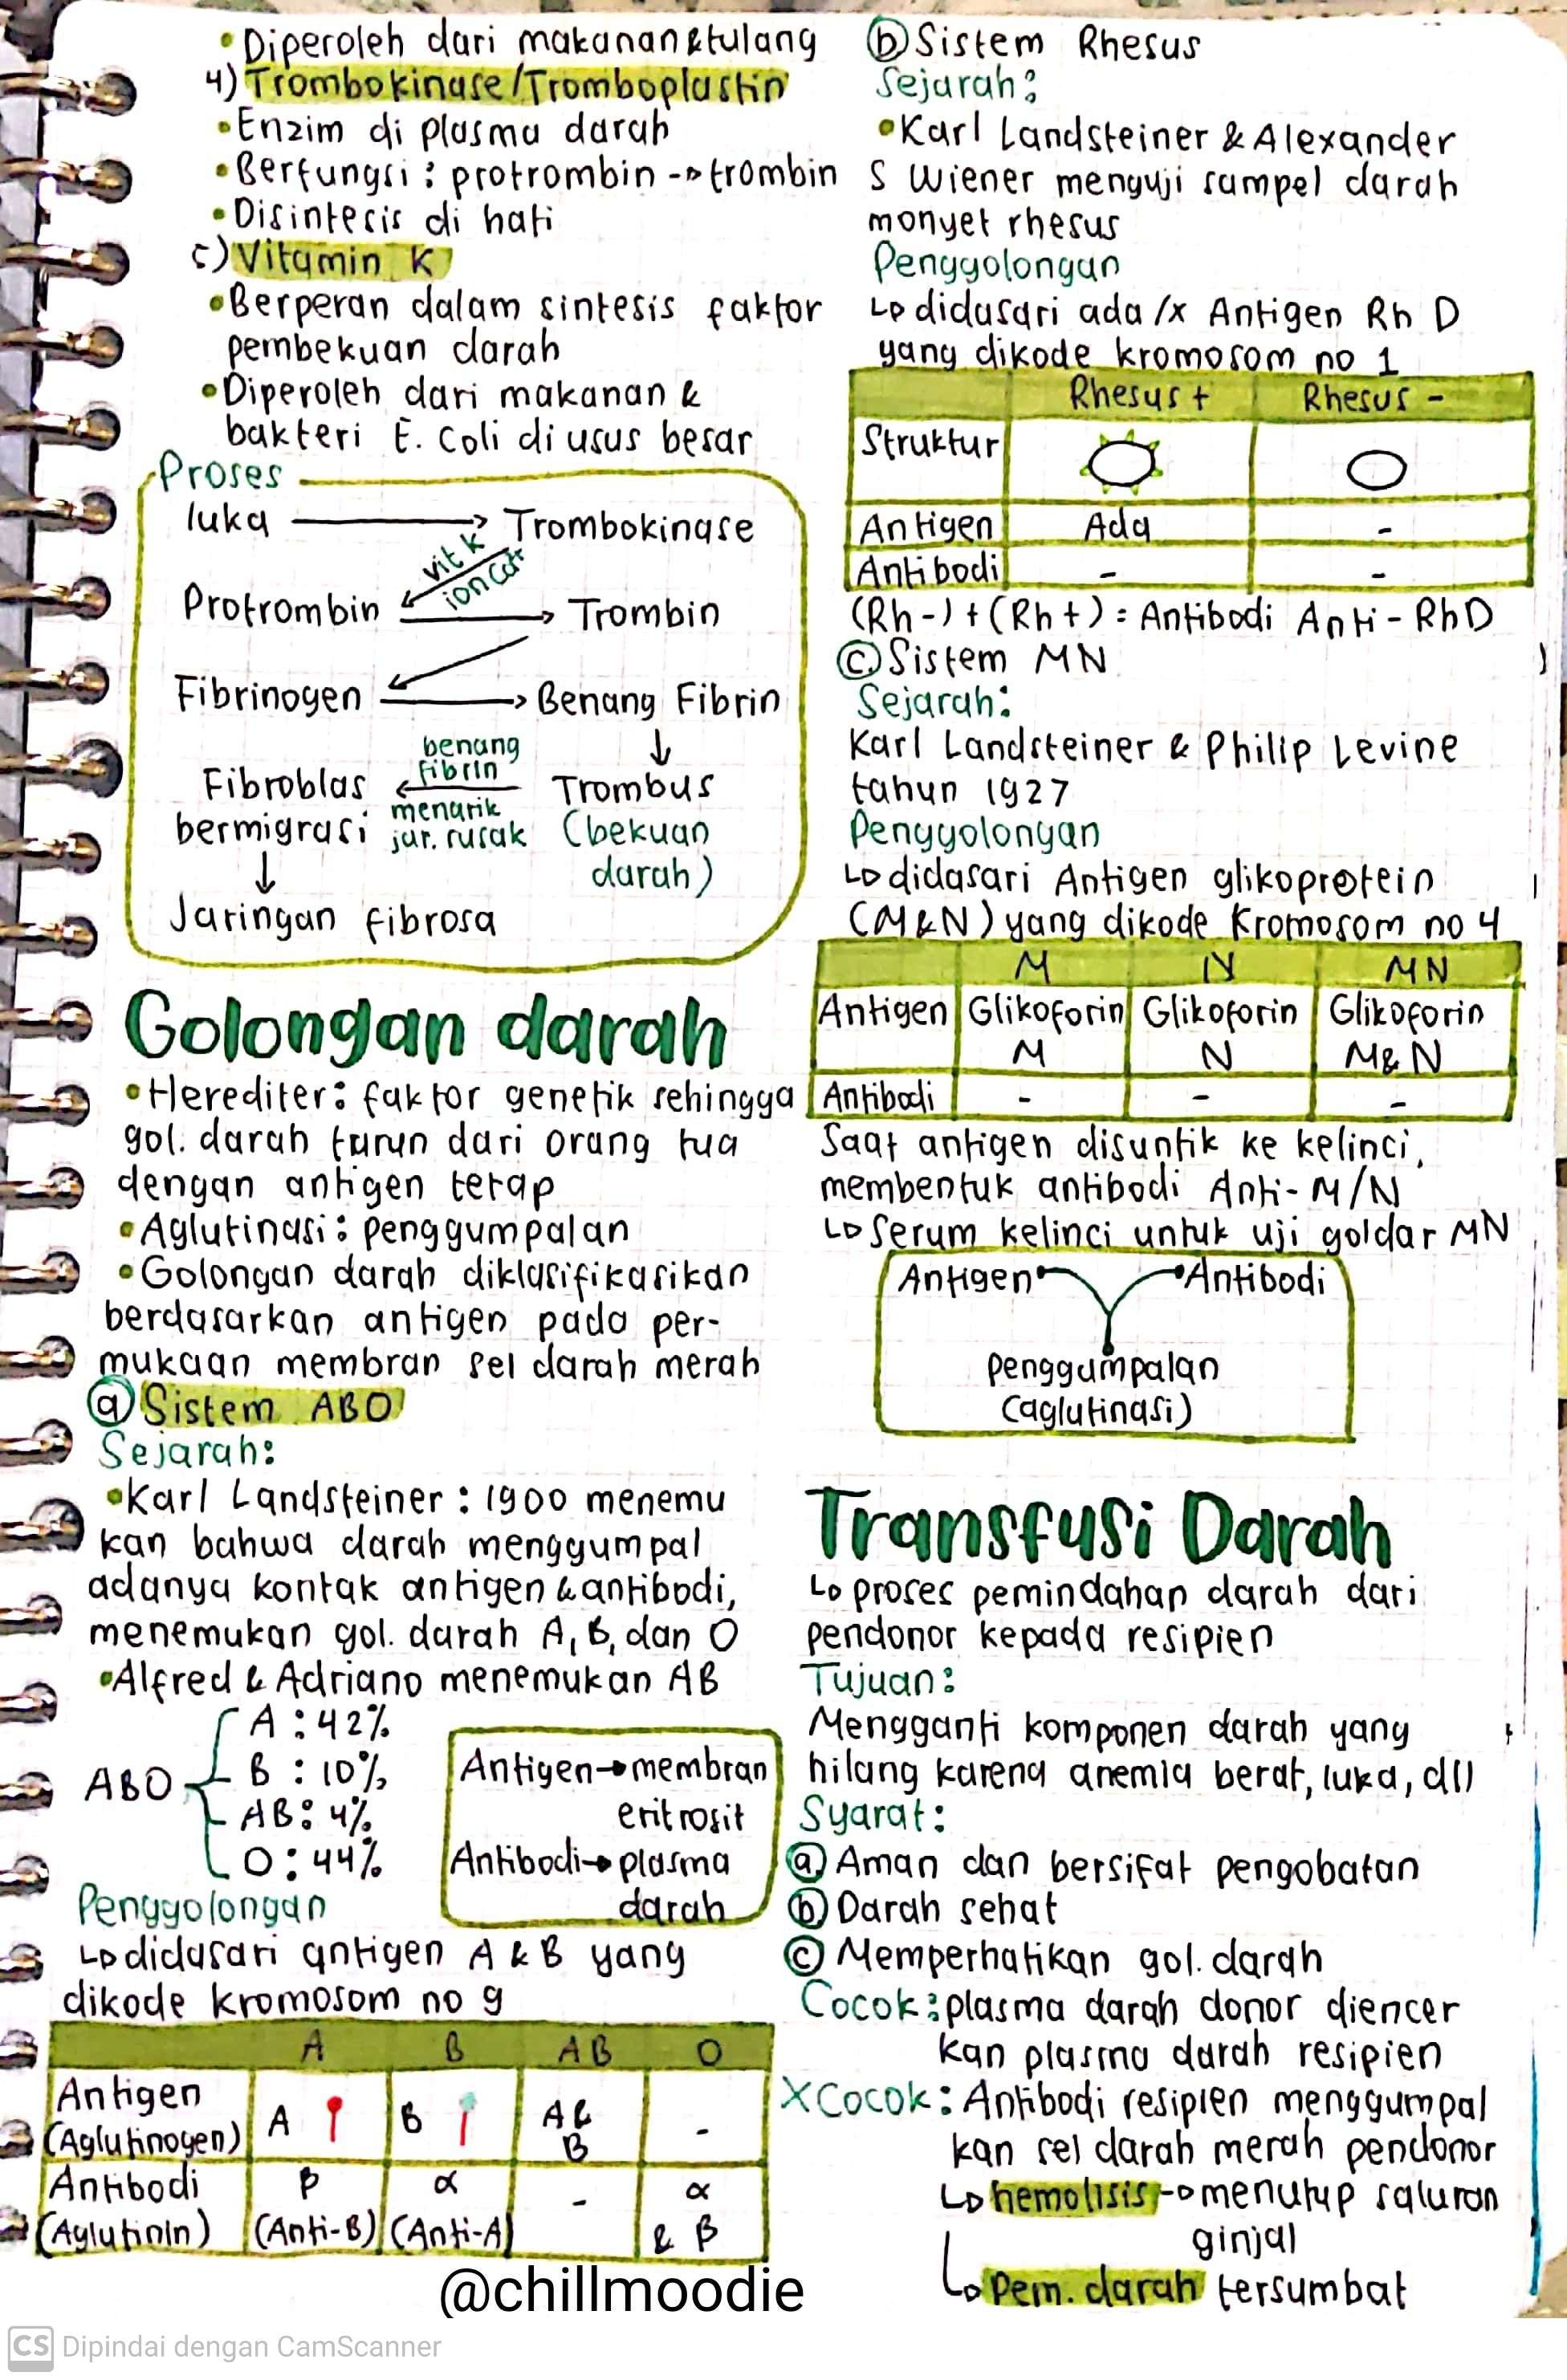 • Diperoleh dari makanan & tulang
4) Trombokinase/Tromboplastin
• Enzim di plasma darah
• Berfungsi : protrombin -> trombin
• Disintesis di hati
5) Vitamin K
• Berperan dalam sintesis faktor
pembekuan darah
• Diperoleh dari makanan &
bakteri E. Coli di usus besar
Proses
luka → Trombokinase
vit K
ion Ca²⁺
Protrombin → Trombin
Fibrinogen → Benang Fibrin
Fibroblas ← benang fibrin menarik jar. rusak Trombus
bermigrasi (bekuan
darah)
↓
Jaringan fibrosa
Golongan darah
• Herediter : faktor genetik sehingga
gol. darah turun dari orang tua
dengan antigen tetap
• Aglutinasi : penggumpalan
• Golongan darah diklasifikasikan
berdasarkan antigen pada per-
mukaan membran sel darah merah
ⓐ Sistem ABO
Sejarah:
• Karl Landsteiner : 1900 menemu
kan bahwa darah menggumpal
adanya kontak antigen & antibodi,
menemukan gol. darah A, B, dan O
• Alfred & Adriano menemukan AB
ABO
A : 42%
B : 10%
AB : 4%
O : 44%
Antigen → membran
eritrosit
Antibodi → plasma
darah
Penggolongan
↳ didasari antigen A & B yang
dikode kromosom no 9
A B AB O
Antigen
(Aglutinogen) A B A & B -
Antibodi β α - α
(Aglutinin) (Anti-B) (Anti-A) & β
ⓑ Sistem Rhesus
Sejarah :
• Karl Landsteiner & Alexander
S Wiener menguji sampel darah
monyet rhesus
Penggolongan
↳ didasari ada/x Antigen Rh D
yang dikode kromosom no 1
Rhesus + Rhesus -
Struktur
Antigen Ada -
Antibodi - -
(Rh-) + (Rh+) = Antibodi Anti-RhD
ⓒ Sistem MN
Sejarah:
Karl Landsteiner & Philip Levine
tahun 1927
Penggolongan
↳ didasari Antigen glikoprotein
(M&N) yang dikode Kromosom no 4
M N MN
Antigen Glikoforin Glikoforin Glikoforin
M N M&N
Antibodi - - -
Saat antigen disuntik ke kelinci,
membentuk antibodi Anti-M/N
↳ Serum kelinci untuk uji goldar MN
Antigen Antibodi
penggumpalan
(aglutinasi)
Transfusi Darah
↳ proses pemindahan darah dari
pendonor kepada resipien
Tujuan :
Mengganti komponen darah yang
hilang karena anemia berat, luka, dll
Syarat :
ⓐ Aman dan bersifat pengobatan
ⓑ Darah sehat
ⓒ Memperhatikan gol. darah
Cocok : plasma darah donor diencer
kan plasma darah resipien
X Cocok : Antibodi resipien menggumpal
kan sel darah merah pendonor
↳ hemolisis → menutup saluran
ginjal
↳ Pem. darah tersumbat
@chillmoodie
CS Dipindai dengan CamScanner